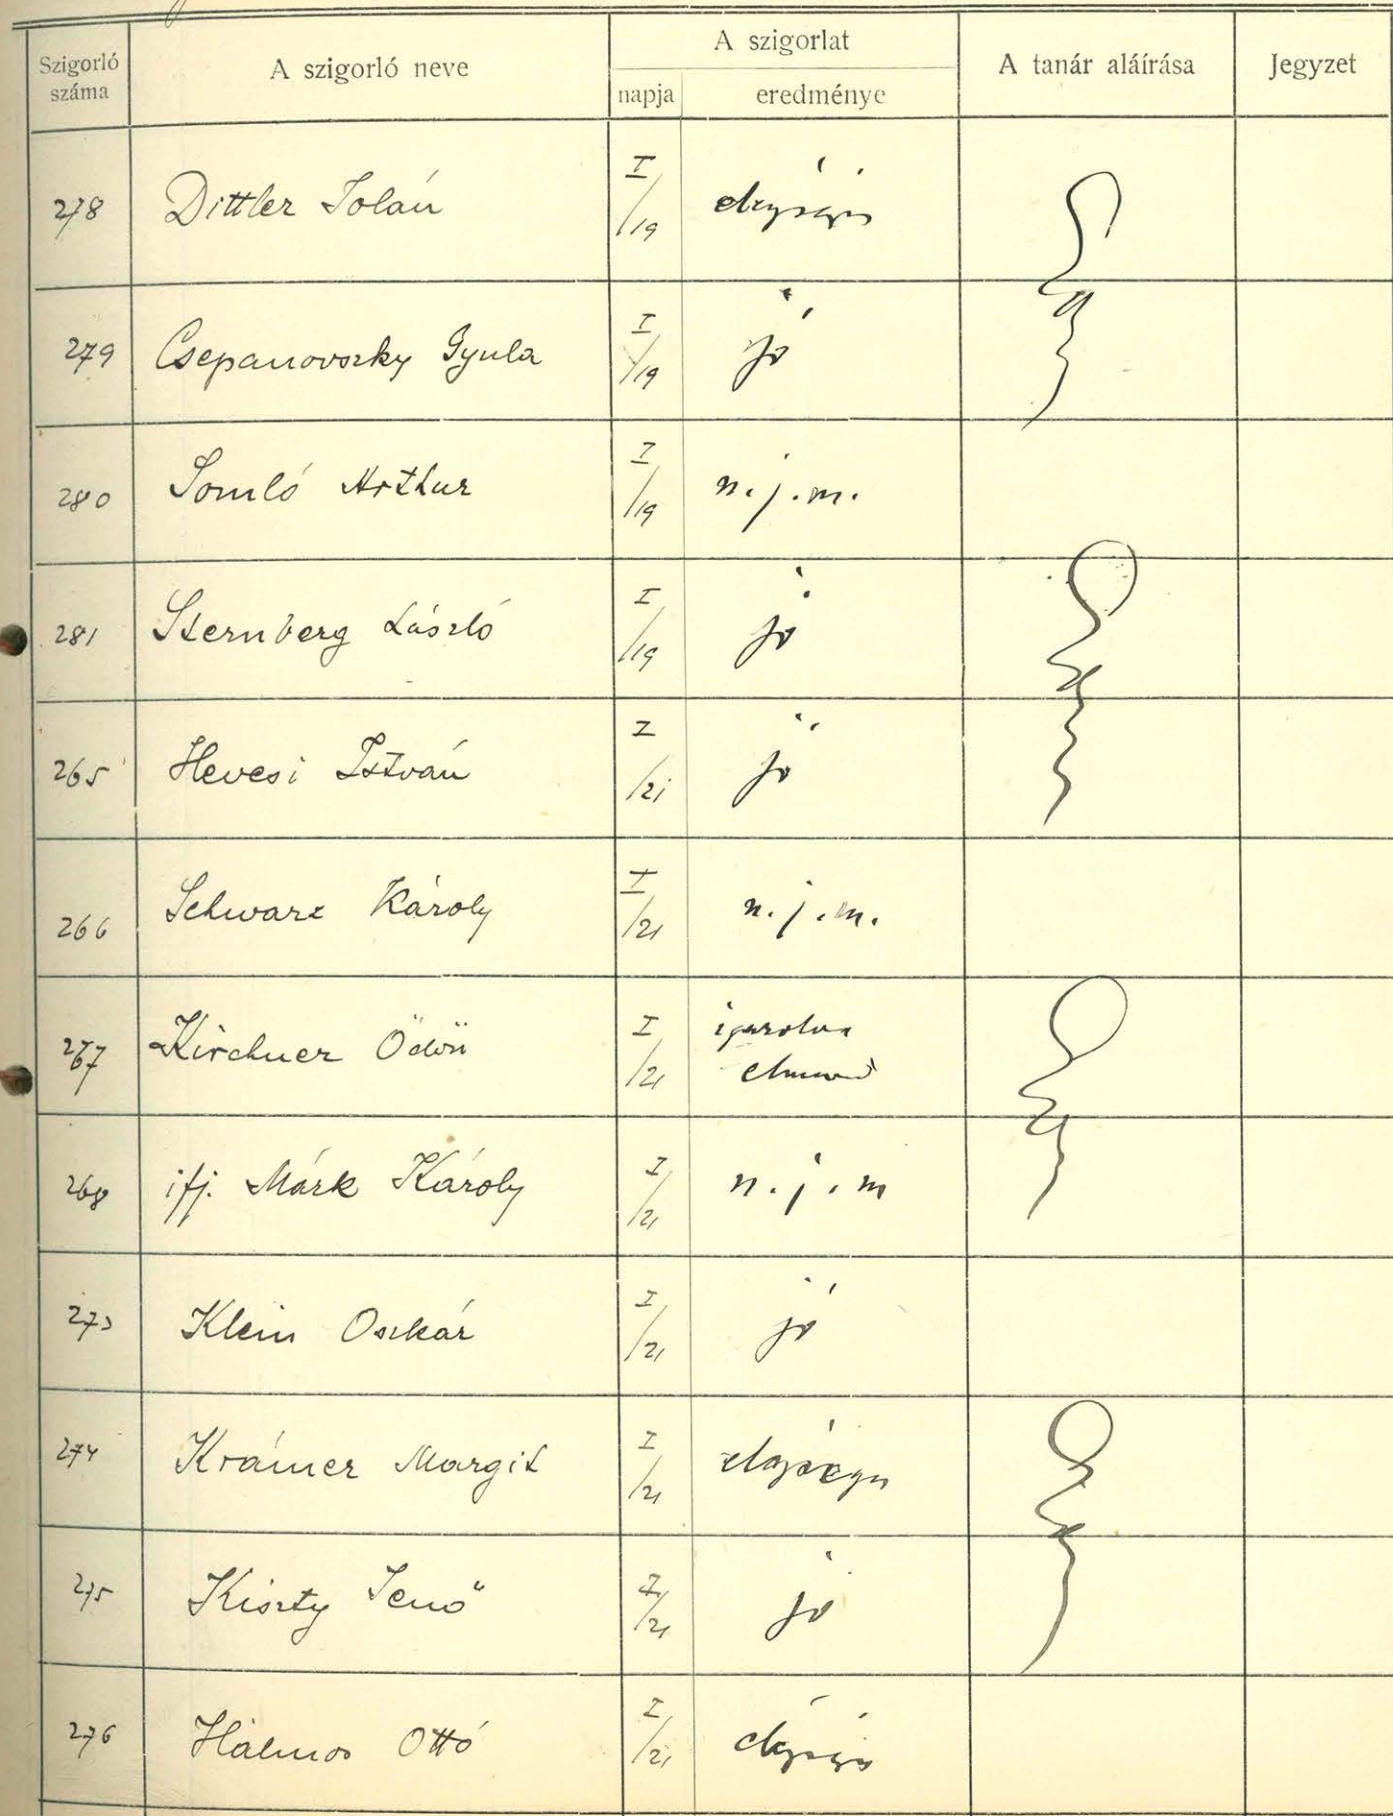 Szigorló száma A szigorló neve A szigorlat napja eredménye A tanár aláírása Jegyzet
278 Dittler Jolán I/19 elégséges
279 Csepanovszky Gyula I/19 jó
280 Somló Arthur I/19 n.j.m.
281 Sternberg László I/19 jó
265 Hevesi István I/21 jó
266 Schwarz Károly I/21 n.j.m.
267 Kirchner Ödön I/21 igazolva
elmaradt
268 ifj. Márk Károly I/21 n.j.m
273 Klein Oszkár I/21 jó
274 Krámer Margit I/21 elégséges
275 Kiszty Jenő I/21 jó
276 Halmos Ottó I/21 elégséges